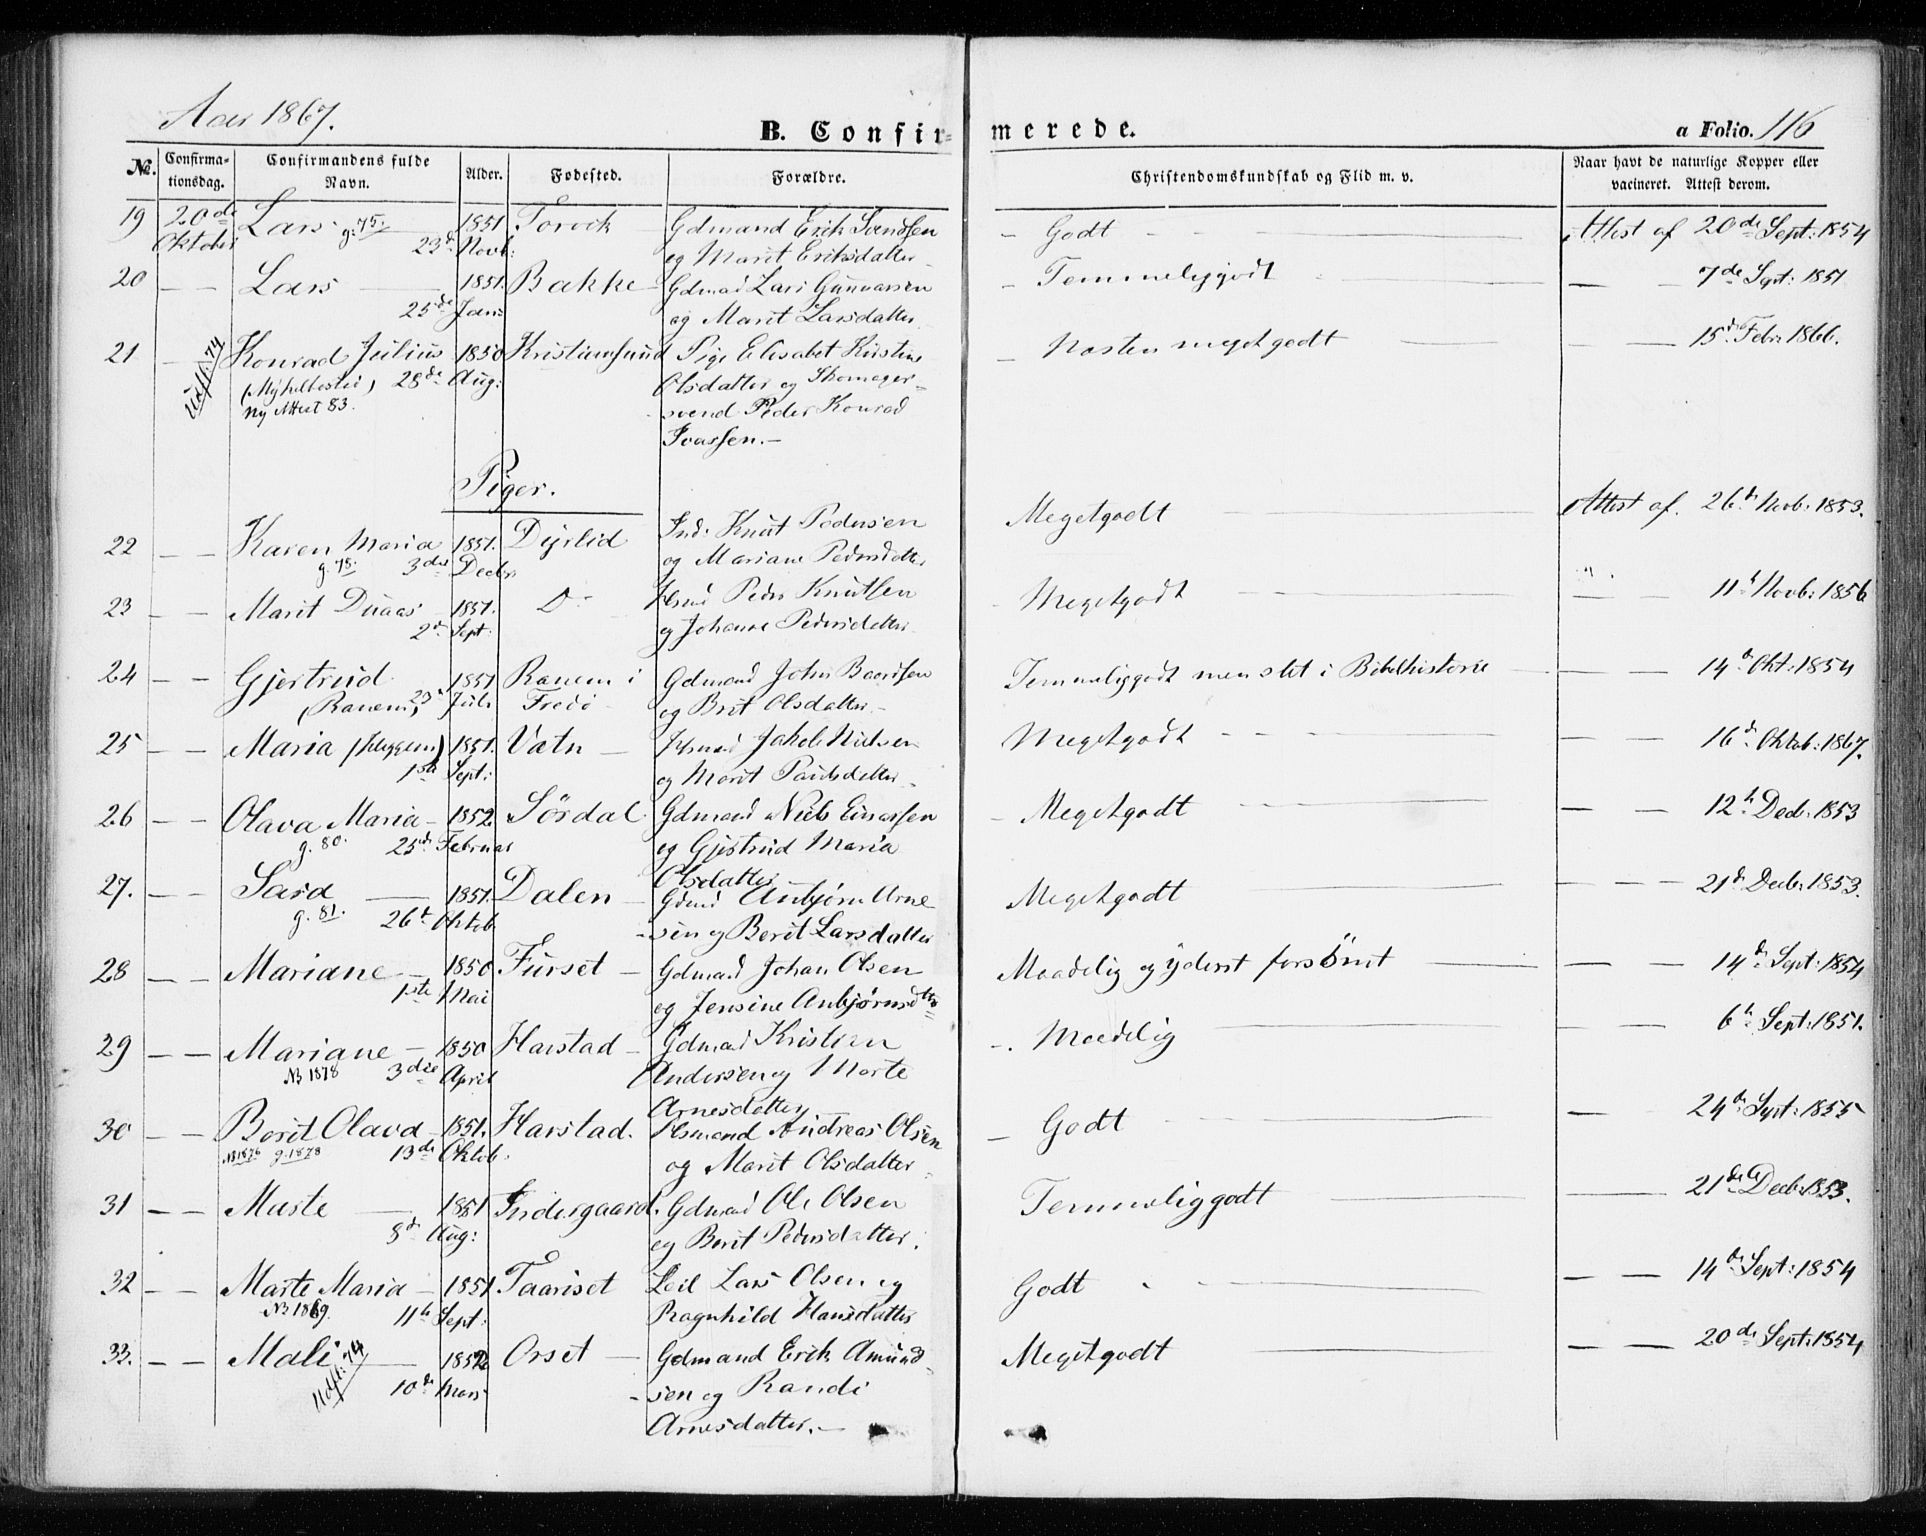 Aar 1867.
B. Confirmerede.
a Folio. 116
No.
Confirmationsdag.
Confirmandens fulde Navn.
Alder.
Fødested.
Forældre.
Christendomskundskab og Flid m. v.
Naar havt de naturlige Kopper eller vaccineret. Attest derom.
19 20de Lars 1851 Torvik Gdmand Erik Sevdsen - Godt - - Attest af 20de Sept: 1854
Oktober g. 75. 23d Novb: og Marit Eriksdatter
20 - - Lars 1851. Bakke Gdmand Lars Gunnarsen - Temmeliggodt - - 7de Sept: 1851
25de Jan: og Marit Larsdatter
21 - Konrad Julius 1850 Kristiansund Pige Elisabet Kirstine - Næsten megetgodt - - 15d Febr: 1866.
Udfl. 74 (Myhelbostad) 28de Aug: Olsdatter og Skomager-
ny Attest 83. svend Peder Konrad
Ivarssen.-
Piger.
22 - - Karen Maria 1851. Dyrlid Ind: Knut Pedersen Megetgodt Attest af. 26d Novb: 1853.
g. 75. 3die Decbr og Mariane Pedersdatter
23 - - Marit Duaas 1851. Do Hsmd Peder Knutsen - Megetgodt - - 11te Novb: 1856
2d Sept: og Johanne Pedersdatter
24 - - Gjertrud 1851 Ranem i Gdmand John Baardsen Temmeliggodt men slet i Bibelhistorie - - 14d Okt: 1854
(Ranem) 23d Juli Fredø og Brit Olsdatter.-
25 - - Maria (Kleggen) 1851. Vatn - Hsmand Jakob Nielsen Megetgodt - - - - 16d Oktob: 1867.
1ste Sept: og Marit Paulsdatter
26 - - Olava Maria 1852. Sördal Gdmand Niels Einarsen - Megetgodt - - 12te Decb: 1853
g. 80. 25de Februar og Gjertrud Maria
Olsdatter
27. - - Sara 1851. Dalen Gdmd Anbjørn Arne- Megetgodt - - - 21d Decb: 1853.
g. 81. 26t Oktob. -sen og Berit Larsdatter
28 - - Mariane 1850 Furset - Gdmand Johan Olsen Maadelig og yderst forsömt - - 14d Sept: 1854
1ste Mai og Jensine Anbjørnsdtr
29 - - Mariane 1850 Harstad Gdmand Kristian -. Maadelig - - 6te Sept: 1851.
NB 1878 3die April Andersen og Marte
Arnesdatter
30 - - Berit Olava 1851. Harstad. Hsmand Andreas Olsen - Godt - 24de Sept: 1855
NB 1876 g. 1878 13de Oktob: og Marit Olsdatter
31 - - Marte 1851 Indergaard. Gdmand Ole Olsen Temmeliggodt 21de Decb: 1853.
8d Aug: og Berit Pedersdatter.
32 - - Marte Maria 1851 Taariset Leil Lars Olsen og Godt - - 14de Sept: 1854
NB 1869. 11te Sept: Ragnhild Hansdatter
33. - - Mali 1852 Orset Gdmand Erik Amund- Megetgodt - - 20de Sept: 1854
Udfl. 74 10de Mars -sen og Randi
Arnesdatter.-